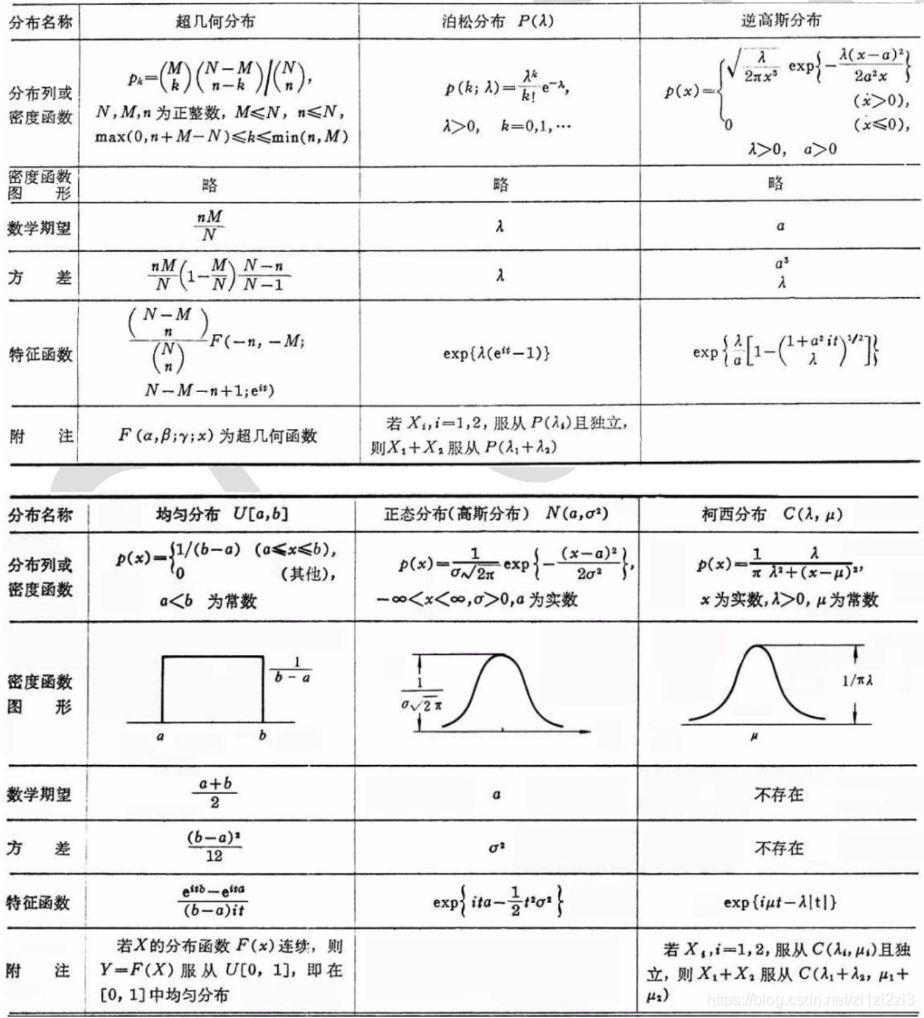 分布名称 超几何分布 泊松分布 P(λ) 逆高斯分布
分布列或密度函数 pₖ=(M k)(N−M n−k)/(N n), N,M,n 为正整数, M≤N, n≤N, max(0,n+M−N)≤k≤min(n,M)
p(k; λ)=λᵏ/k! e^{-λ}, λ>0, k=0,1,⋯
p(x)={√(λ/2πx³) exp{−λ(x−a)²/2a²x} (x>0), 0 (x≤0), λ>0, a>0
密度函数图形 略 略 略
数学期望 nM/N λ a
方差 nM/N(1−M/N)N−n/N−1 λ a³ λ
特征函数 (N−M n)/(N n) F(−n, −M; N−M−n+1; e^{it}) exp{λ(e^{it}−1)} exp{λ/a[1−(1+a²it/λ)^{1/2}]}
附注 F(α,β;γ;x) 为超几何函数 若 Xᵢ,i=1,2, 服从 P(λᵢ)且独立, 则X₁+X₂ 服从 P(λ₁+λ₂)
分布名称 均匀分布 U[a,b] 正态分布(高斯分布) N(a,σ²) 柯西分布 C(λ, μ)
分布列或密度函数 p(x)={1/(b−a) (a≤x≤b), 0 (其他), a<b 为常数
p(x)=1/σ√2π exp{−(x−a)²/2σ²}, −∞<x<∞,σ>0,a 为实数
p(x)=1/π λ/λ²+(x−μ)², x 为实数,λ>0, μ 为常数
密度函数图形 1/b−a a b 1/σ√2π 1/πλ μ
数学期望 a+b/2 a 不存在
方差 (b−a)²/12 σ² 不存在
特征函数 e^{itb}−e^{ita}/(b−a)it exp{ita−1/2t²σ²} exp{iμt−λ|t|}
附注 若X的分布函数 F(x)连续, 则 Y=F(X) 服从 U[0, 1], 即在 [0, 1]中均匀分布
若 Xᵢ,i=1,2, 服从 C(λᵢ,μᵢ)且独立, 则 X₁+X₂ 服从 C(λ₁+λ₂, μ₁+μ₂)
https://blog.csdn.net/zl1zl2zl3